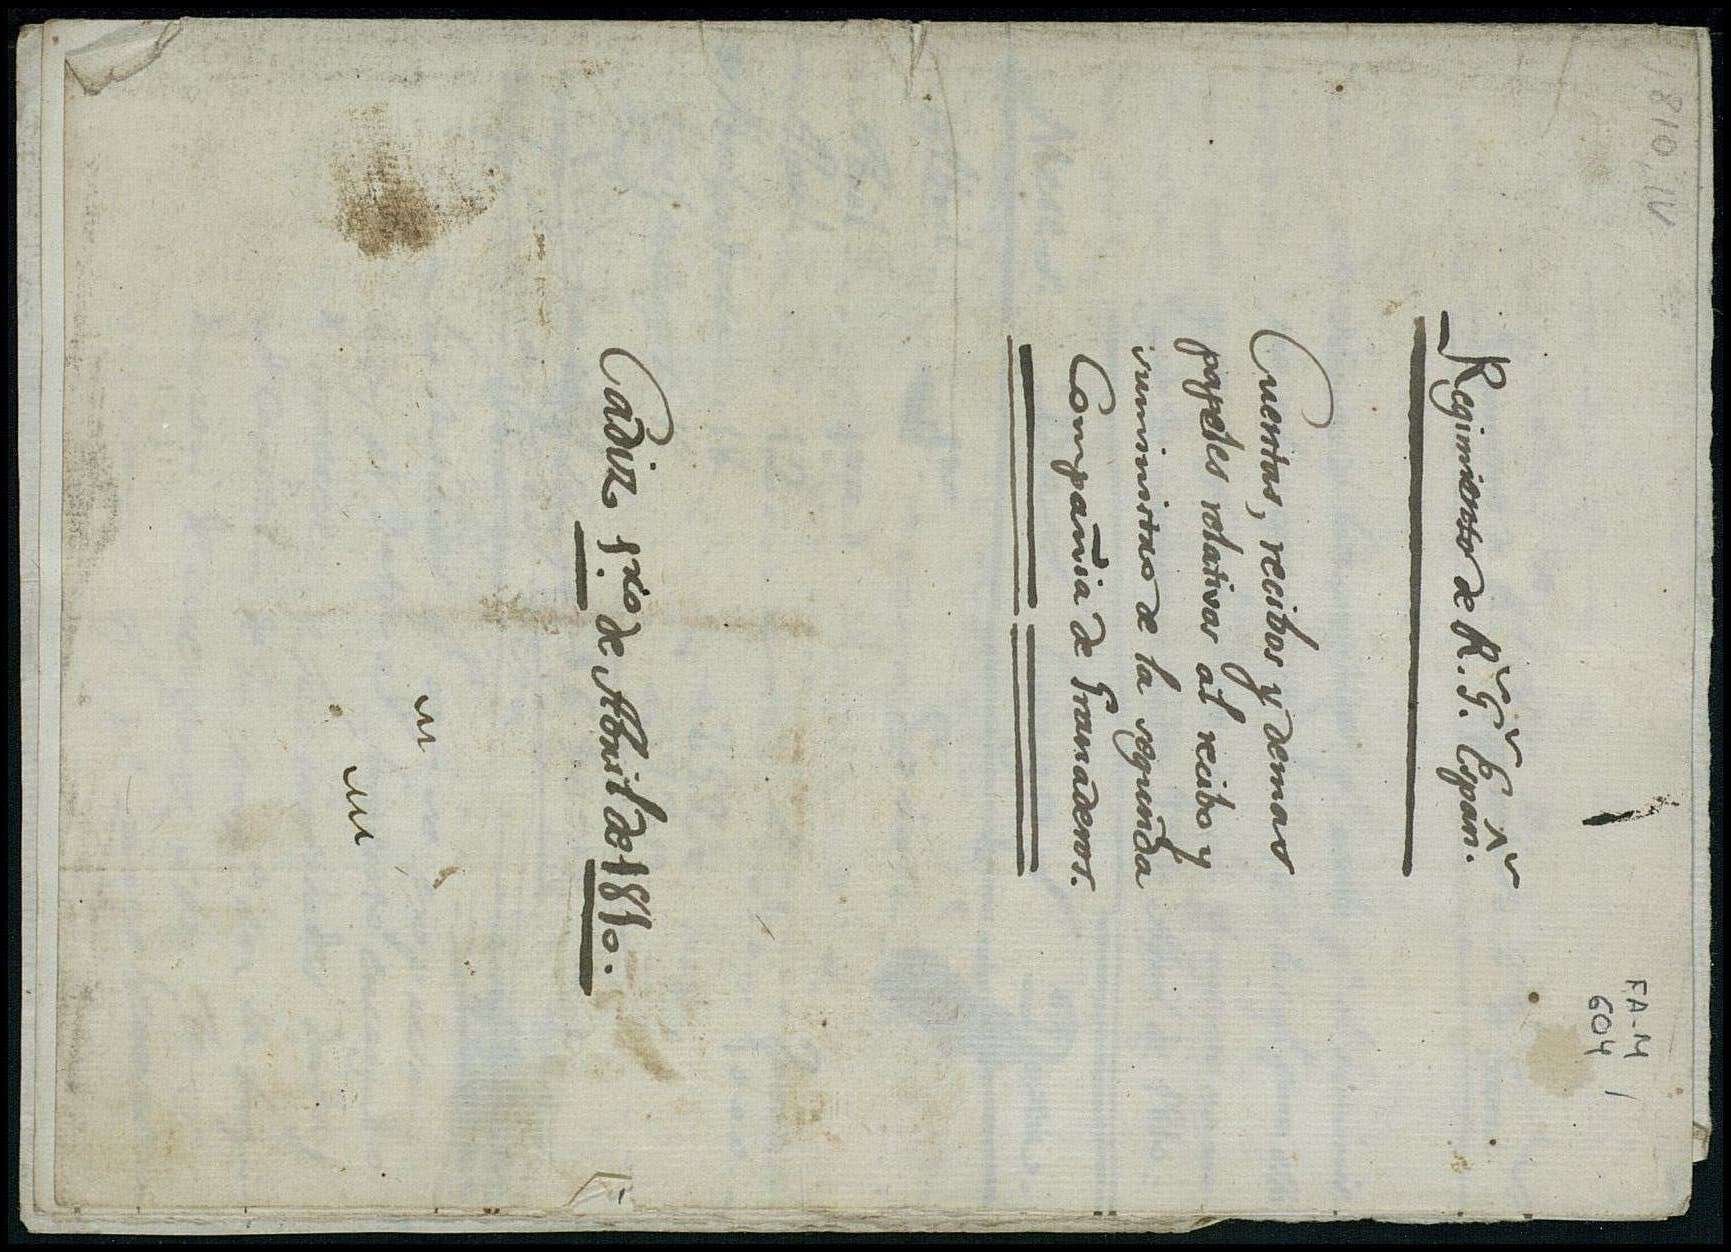 1810, IV
FA-M
604
Regimiento de R.^s G.^s Españ.^s
Cuentas, recibos y demas
papeles relativos al recibo y
suministro de la segunda
Compañia de Granaderos.
Cádiz 1.ro de Abril de 1810.